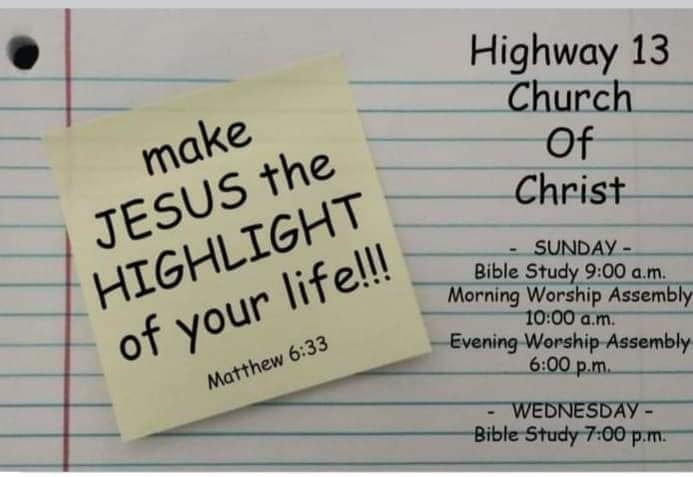 make
JESUS the
HIGHLIGHT
of your life!!!
Matthew 6:33
Highway 13
Church
Of
Christ
- SUNDAY -
Bible Study 9:00 a.m.
Morning Worship Assembly
10:00 a.m.
Evening Worship Assembly
6:00 p.m.
- WEDNESDAY -
Bible Study 7:00 p.m.